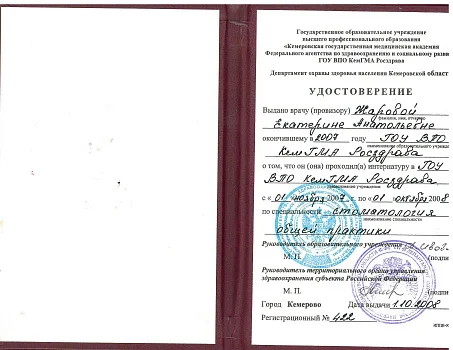 Государственное образовательное учреждение
высшего профессионального образования
«Кемеровская государственная медицинская академия
Федерального агентства по здравоохранению и социальному разви
ГОУ ВПО КемГМА Росздрава
Департамент охраны здоровья населения Кемеровской област
УДОСТОВЕРЕНИЕ
Выдано врачу (провизору) Жаровой
фамилия, имя, отчество
Екатерине Анатольевне
окончившему в 2007 году ГОУ ВПО
наименование образовательного учрежд
КемГМА Росздрава
о том, что он (она) проходил(а) интернатуру в ГОУ
ВПО КемГМА Росздрава
наименование учреждения
с «01 ноября 2007 г. по «01 октября 2008
по специальности стоматология
наименование специальности
общей практики
Руководитель образовательного учреждения
М. П. (подпи
Руководитель территориального органа управления
здравоохранения субъекта Российской Федерации
М. П. (подпи
Город Кемерово Дата выдачи 1.10.2008
Регистрационный № 422